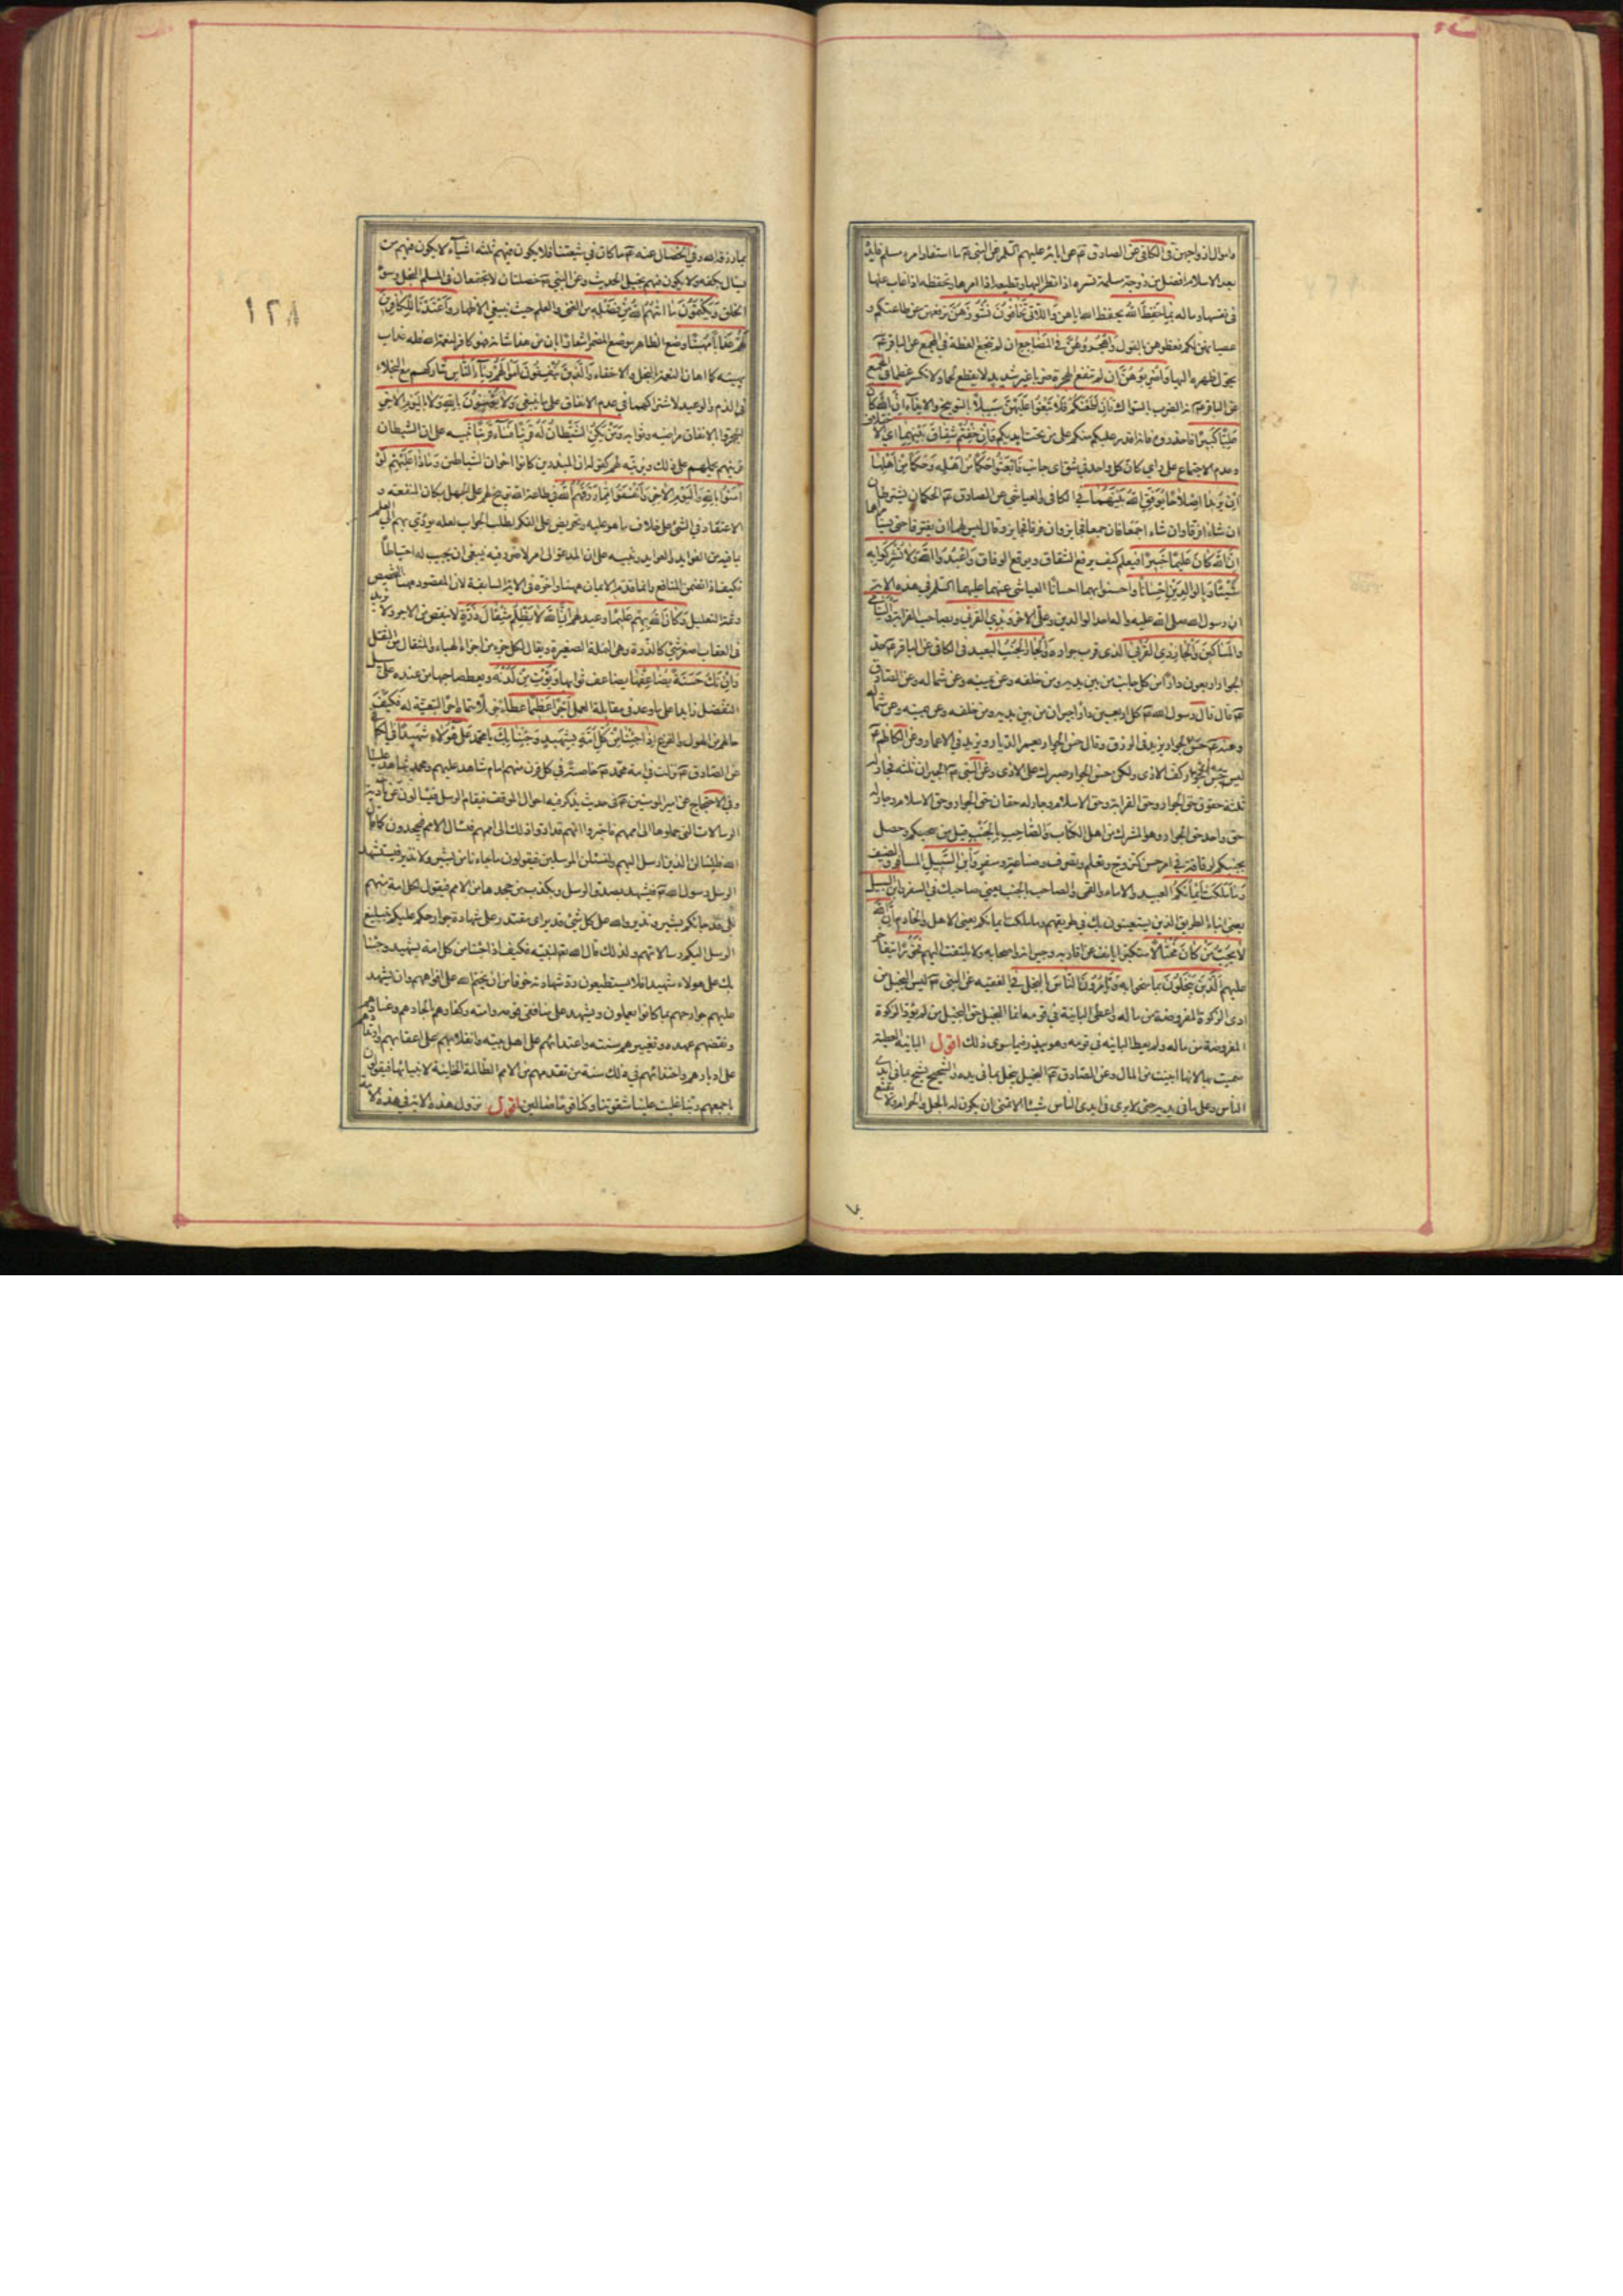 واموال ازواجهن في الكافي عن الصادق عن ابائه عليهم السلام عن النبي ما استفاد امرء مسلم فايدة
بعد الاسلام افضل من زوجة مسلمة تسره اذا نظر اليها وتطيعه اذا امرها وتحفظه اذا غاب عنها
في نفسها وماله بما حفظ الله بحفظ الله اياهن واللاتي تخافون نشوزهن ترفعهن عن طاعتكم و
عصيانهن لكم فعظوهن بالقول واهجروهن في المضاجع ان لم تنجع العظة في المجمع عن الباقر
يحول ظهره اليها واضربوهن ان لم تنفع الهجرة ضربا غير شديد لا يقطع لحما ولا يكسر عظما في المجمع
عن الباقر انه الضرب بالسواك فان اطعنكم فلا تبغوا عليهن سبيلا بالتوبيخ والايذاء ان الله كان
عليا كبيرا فاحذروه فانه اقدر عليكم منكم على من تحت ايديكم وان خفتم شقاق بينهما اي الاختلاف
وعدم الاجتماع على راي كان كل واحد في شق اي جانب فابعثوا حكما من اهله وحكما من اهلها
ان يريدا اصلاحا يوفق الله بينهما في الكافي والعياشي عن الصادق الحكمان يشترطان
ان شاءا فرقا وان شاءا جمعا فان جمعا فجايز وان فرقا فجايز وقال ليس لهما ان يفرقا حتى يستامراها
ان الله كان عليما خبيرا فيعلم كيف يرفع الشقاق ويوقع الوفاق واعبدوا الله ولا تشركوا به
شيئا وبالوالدين احسانا واحسنوا بهما احسانا العياشي عنهما عليهما السلام في هذه الاية
ان رسول الله صلى الله عليه واله احد الوالدين وعلي الاخر وبذي القربى وبصاحب القرابة واليتامى
والمساكين والجار ذي القربى الذي قرب جواره والجار الجنب البعيد في الكافي عن الباقر حد
الجوار اربعون دارا من كل جانب من بين يديه ومن خلفه وعن يمينه وعن شماله وعن الصادق
قال قال رسول الله كل اربعين دارا جيران من بين يديه ومن خلفه وعن يمينه وعن شماله
وعنه حسن الجوار يزيد في الرزق وقال حسن الجوار يعمر الديار ويزيد في الاعمار وعن الكاظم
ليس حسن الجوار كف الاذى ولكن حسن الجوار صبرك على الاذى وعن النبي الجيران ثلثه فجار له
ثلثة حقوق حق الجوار وحق القرابة وحق الاسلام وجار له حقان حق الجوار وحق الاسلام وجار له
حق واحد حق الجوار وهو المشرك من اهل الكتاب والصاحب بالجنب قيل من صحبكم وحصل
بجنبكم لرفاقة في امر حسن كتزوج وتعلم وتصرف وصناعة وسفر وابن السبيل المسافر والضيف
وما ملكت ايمانكم العبيد والاماء والقمي والصاحب بالجنب يعني صاحبك في السفر وابن السبيل
يعني ابناء الطريق الذين يستعينون بك في طريقهم وما ملكت ايمانكم يعني الاهل والخادم ان الله
لا يحب من كان مختالا متكبرا يانف عن اقاربه وجيرانه واصحابه ولا يلتفت اليهم فخورا يتفاخر
عليهم الذين يبخلون بما منحوا به ويامرون الناس بالبخل في الفقيه عن النبي ليس البخيل من
ادى الزكوة المفروضة من ماله واعطى الباينة في قومه انما البخيل حق البخيل من لم يؤد الزكوة
المفروضة من ماله ولم يعط الباينه في قومه وهو يبذر فيما سوى ذلك اقول الباينة العطية
سميت بها لانها ابينت من المال وعن الصادق البخيل يبخل بما في يده والشحيح يشح بما في ايدي
الناس وعلى ما في يديه حتى لا يرى في ايدي الناس شيئا الا تمنى ان يكون له بالحل والحرام ولا يقنع
بما رزقه الله وفي الخصال عنه ما كان في شيعتنا فلا يكون فيهم ثلثه اشياء لا يكون فيهم من
يسال بكفه ولا يكون فيهم بخيل الحديث وعن النبي خصلتان لا تجتمعان في المسلم البخل وسوء
الخلق ويكتمون ما اتيهم الله من فضله من الغنى والعلم حيث ينبغي الاظهار واعتدنا للكافرين
عذابا مهينا وضع الظاهر موضع المضمر اشعارا بان من هذا شانه فهو كافر لنعمة الله فله عذاب
يهينه كما اهان النعمة بالبخل والاخفاء والذين ينفقون اموالهم رئاء الناس شاركهم مع البخلاء
في الذم والوعيد لاشتراكهما في عدم الانفاق على ما ينبغي ولا يؤمنون بالله ولا باليوم الاخر
ليتحروا بالانفاق مراضيه وثوابه ومن يكن الشيطان له قرينا فساء قرينا تنبيه على ان الشيطان
قرينهم يحملهم على ذلك ويزينه لهم كقوله ان المبذرين كانوا اخوان الشياطين وماذا عليهم لو
امنوا بالله واليوم الاخر وانفقوا مما رزقهم الله في طاعة الله توبيخ لهم على الجهل بمكان المنفعة و
الاعتقاد في الشئ على خلاف ما هو عليه وتحريض على الفكر لطلب الجواب لعله يؤدي بهم الى العلم
بما فيه من الفوايد والعوايد وتنبيه على ان المدعو الى امر لا ضرر فيه ينبغي ان يجيب له احتياطا
فكيف اذا تضمن المنافع وانما قدم الايمان ههنا واخره في الاية السابقة لان المقصود ههنا التحضيض
وثمة التعليل وكان الله بهم عليما وعيد لهم ان الله لا يظلم مثقال ذرة لا ينقص من الاجر ولا يزيد
في العقاب اصغر شئ كالذرة وهي النملة الصغيرة ويقال لكل جزء من اجزاء الهباء والمثقال من الثقل
وان تك حسنة يضاعفها يضاعف ثوابها ويؤت من لدنه ويعط صاحبها من عنده على سبيل
التفضل زايدا على ما وعد في مقابلة العمل اجرا عظيما عطاء جزيلا
حالهم من الهول والفزع اذا جئنا من كل امة بشهيد وجئنا بك يا محمد على هؤلاء شهيدا في الكافي
عن الصادق نزلت في امة محمد خاصة في كل قرن منهم امام شاهد عليهم ومحمد شاهد علينا
وفي الاحتجاج عن امير المؤمنين في حديث يذكر فيه احوال الموقف فيقام الرسل فيسالون عن تادية
الرسالات التي حملوها الى اممهم فاخبروا انهم قد ادوا ذلك الى اممهم فتسال الامم فيجحدون كما قال
الله فلنسالن الذين ارسل اليهم ولنسئلن المرسلين فيقولون ما جاءنا من بشير ولا نذير فيستشهد
الرسل رسول الله فيشهد بصدق الرسل ويكذب من جحدها من الامم فيقول لكل امة منهم
بلى قد جاءكم بشير ونذير والله على كل شئ قدير اي مقتدر على شهادة جوارحكم عليكم بتبليغ
الرسل اليكم رسالاتهم ولذلك قال الله تعالى لنبيه فكيف اذا جئنا من كل امة بشهيد وجئنا
بك على هؤلاء شهيدا فلا يستطيعون رد شهادته خوفا من ان يختم الله على افواههم وان يشهد
عليهم جوارحهم بما كانوا يعملون ويشهد على منافقي قومه وامته وكفارهم بالحادهم وعنادهم
ونقضهم عهده وتغييرهم سنته واعتدائهم على اهل بيته وانقلابهم على اعقابهم وارتدادهم
على ادبارهم واحتذائهم في ذلك سنة من تقدمهم من الامم الظالمة الخاينة لانبيائها فيقولون
باجمعهم ربنا غلبت علينا شقوتنا وكنا قوما ضالين اقول نزول هذه الاية في هذه الامة
١٢٨